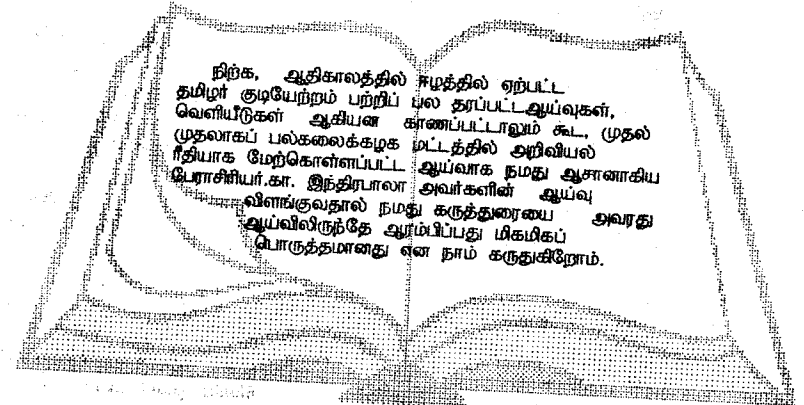 நிற்க, ஆதிகாலத்தில் ஈழத்தில் ஏற்பட்ட
தமிழர் குடியேற்றம் பற்றிப் பல தரப்பட்டஆய்வுகள்,
வெளியீடுகள் ஆகியன காணப்பட்டாலும் கூட, முதல்
முதலாகப் பல்கலைக்கழக மட்டத்தில் அறிவியல்
ரீதியாக மேற்கொள்ளப்பட்ட ஆய்வாக நமது ஆசானாகிய
பேராசிரியர்.கா. இந்திரபாலா அவர்களின் ஆய்வு
விளங்குவதால் நமது கருத்துரையை அவரது
ஆய்விலிருந்தே ஆரம்பிப்பது மிகமிகப்
பொருத்தமானது என நாம் கருதுகிறோம்.